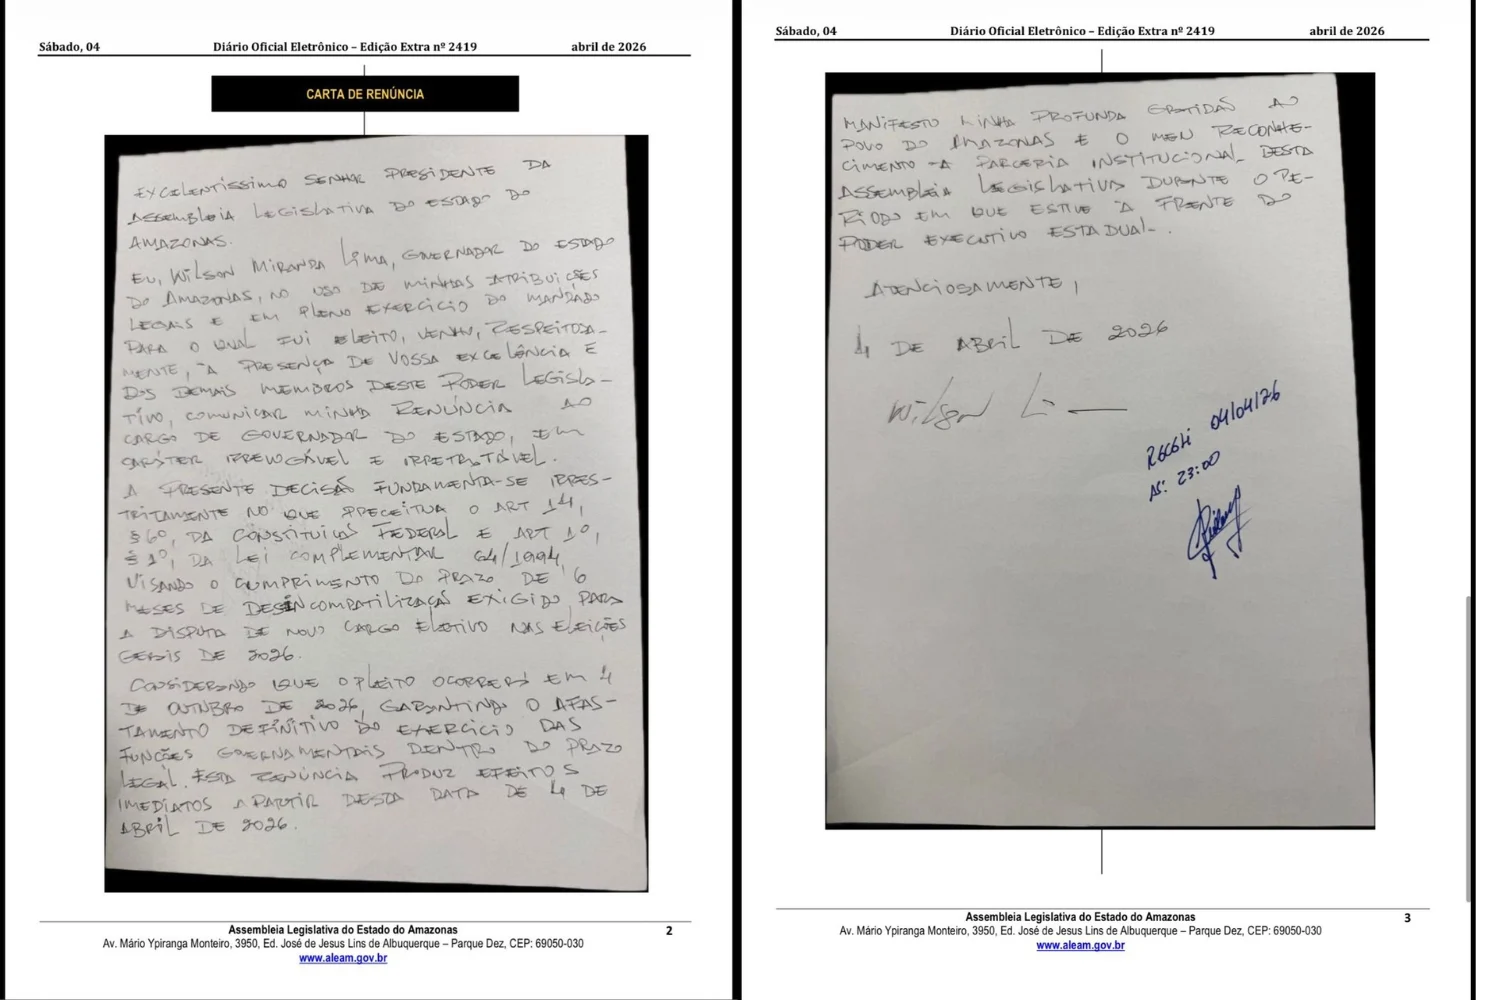 Sábado, 04 Diário Oficial Eletrônico – Edição Extra nº 2419 abril de 2026
CARTA DE RENÚNCIA
EXCELENTÍSSIMO SENHOR PRESIDENTE DA
ASSEMBLEIA LEGISLATIVA DO ESTADO DO
AMAZONAS.
EU, WILSON MIRANDA LIMA, GOVERNADOR DO ESTADO
DO AMAZONAS, NO USO DE MINHAS ATRIBUIÇÕES
LEGAIS E EM PLENO EXERCÍCIO DO MANDADO
PARA O QUAL FUI ELEITO, VENHO, RESPEITOSA-
MENTE, À PRESENÇA DE VOSSA EXCELÊNCIA E
DOS DEMAIS MEMBROS DESTE PODER LEGISLA-
TIVO, COMUNICAR MINHA RENÚNCIA AO
CARGO DE GOVERNADOR DO ESTADO, EM
CARÁTER IRREVOGÁVEL E IRRETRATÁVEL.
A PRESENTE DECISÃO FUNDAMENTA-SE IRRES-
TRITAMENTE NO QUE PRECEITUA O ART 14,
§ 6º, DA CONSTITUIÇÃO FEDERAL E ART 1º,
§ 1º, DA LEI COMPLEMENTAR 64/1994,
VISANDO O CUMPRIMENTO DO PRAZO DE 6
MESES DE DESINCOMPATILIZAÇÃO EXIGIDO PARA
A DISPUTA DE NOVO CARGO ELETIVO NAS ELEIÇÕES
GERAIS DE 2026.
CONSIDERANDO QUE O PLEITO OCORRERÁ EM 4
DE OUTUBRO DE 2026, GARANTINDO O AFAS-
TAMENTO DEFINITIVO DO EXERCÍCIO DAS
FUNÇÕES GOVERNAMENTAIS DENTRO DO PRAZO
LEGAL. ESTA RENÚNCIA PRODUZ EFEITOS
IMEDIATOS A PARTIR DESTA DATA DE 4 DE
ABRIL DE 2026.
Assembleia Legislativa do Estado do Amazonas 2
Av. Mário Ypiranga Monteiro, 3950, Ed. José de Jesus Lins de Albuquerque – Parque Dez, CEP: 69050-030
www.aleam.gov.br
Sábado, 04 Diário Oficial Eletrônico – Edição Extra nº 2419 abril de 2026
MANIFESTO MINHA PROFUNDA GRATIDÃO AO
POVO DO AMAZONAS E O MEU RECONHE-
CIMENTO A PARCERIA INSTITUCIONAL DESTA
ASSEMBLEIA LEGISLATIVA DURANTE O PE-
RÍODO EM QUE ESTIVE À FRENTE DO
PODER EXECUTIVO ESTADUAL.
ATENCIOSAMENTE,
4 DE ABRIL DE 2026
Wilson Li
RECEBI 04/04/26
AS: 23:00
Assembleia Legislativa do Estado do Amazonas 3
Av. Mário Ypiranga Monteiro, 3950, Ed. José de Jesus Lins de Albuquerque – Parque Dez, CEP: 69050-030
www.aleam.gov.br